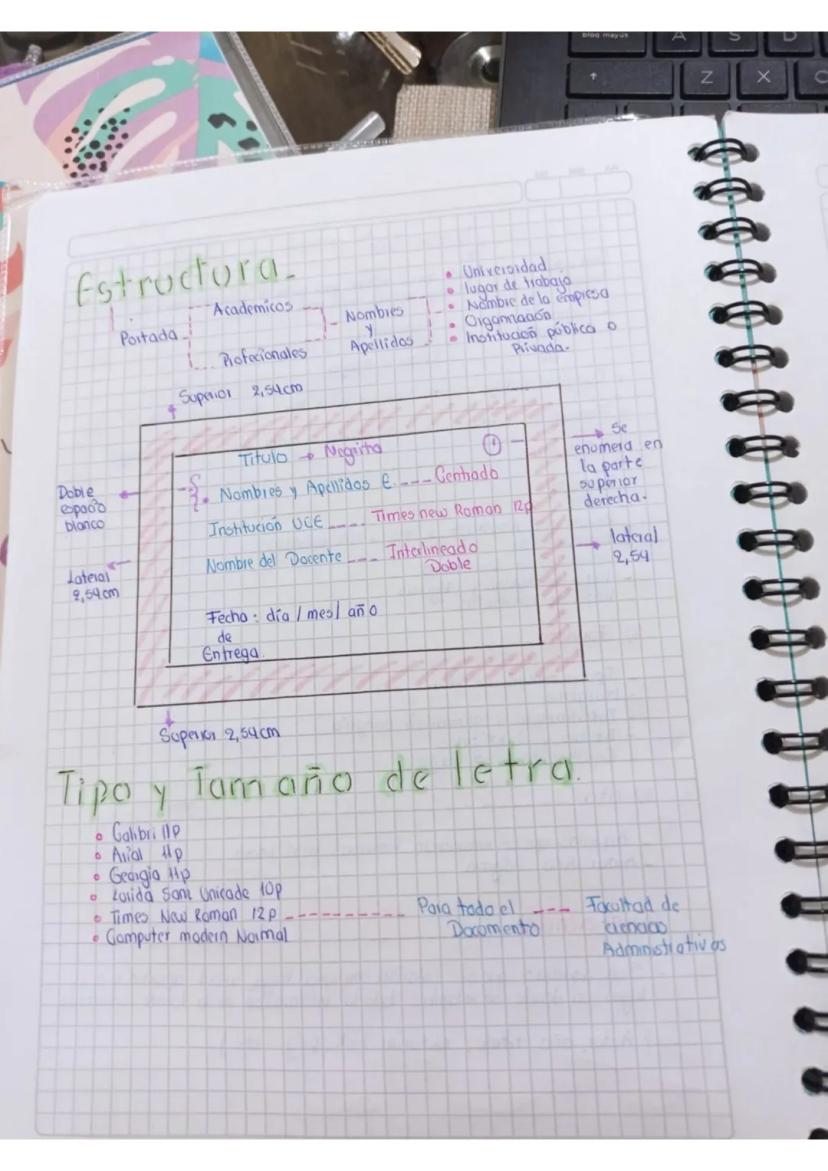 Bloq mayus
A
S
D
↑
Z
X
C
Estructura.
Portada
Academicos
Profecionales
Nombres
y
Apellidos
• Universidad
• lugar de trabajo
• Nombre de la empresa
• Organización
• Institución pública o
Privada.
Superior 2,54cm
Titulo → Negrita
Nombres y Apellidos E. ---- Centrado
Institución UCE ---- Times new Roman 12p
Nombre del Docente ---- Interlineado
Doble
Fecha: día / mes / año
de
Entrega.
Doble
espacio
blanco
Lateral
2,54cm
Se
enumera en
la parte
superior
derecha.
lateral
2,54
Superior 2,54cm
Tipo y Tamaño de letra.
• Calibri 11p
• Arial 11p
• Georgia 11p
• Lucida Sans Unicade 10p
• Times New Roman 12p ---------- Para todo el ---- Facultad de
Documento
ciencias
Administrativas
• Computer modern Normal